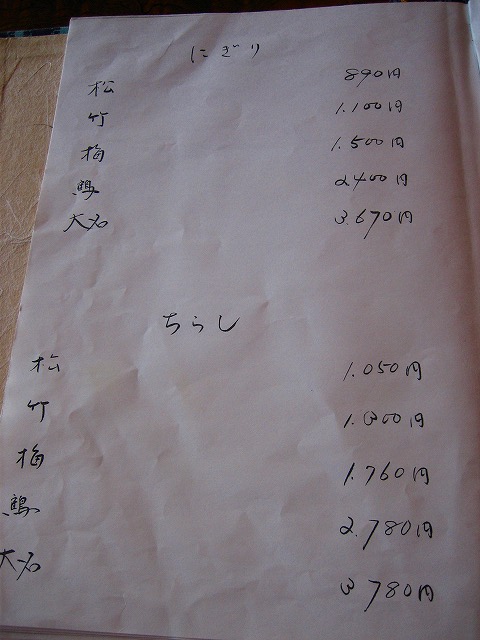 にぎり
松 890円
竹 1.100円
梅 1.500円
鶴 2.400円
大名 3.670円
ちらし
松 1.050円
竹 1.300円
梅 1.760円
鶴 2.780円
大名 3780円